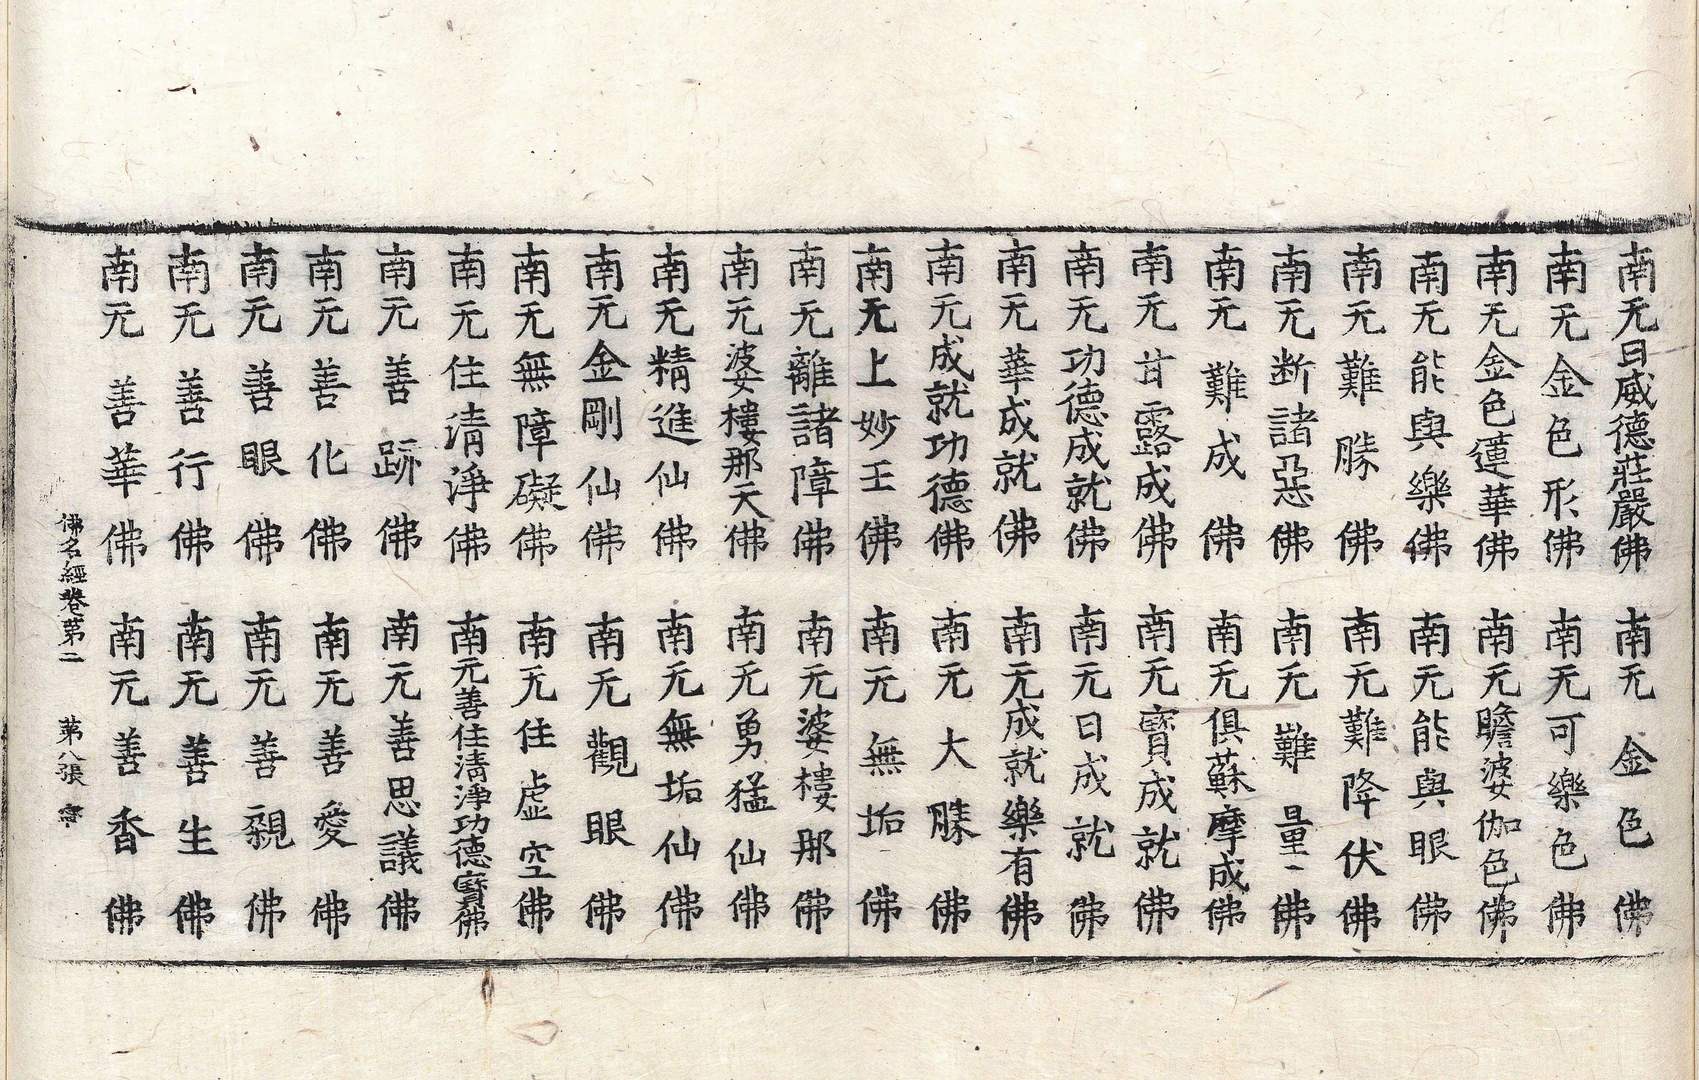 南无日威德莊嚴佛　南无金色佛
南无金色形佛　南无可樂色佛
南无金色蓮華佛　南无瞻婆伽色佛
南无能與樂佛　南无能與眼佛
南无難勝佛　南无難降伏佛
南无断諸惡佛　南无難量佛
南无難成佛　南无俱蘇摩成佛
南无甘露成佛　南无寳成就佛
南无功德成就佛　南无日成就佛
南无華成就佛　南无成就樂有佛
南无成就功德佛　南无大勝佛
南无上妙王佛　南无無垢佛
南无離諸障佛　南无婆樓那佛
南无婆樓那天佛　南无勇猛仙佛
南无精進仙佛　南无無垢仙佛
南无金剛仙佛　南无觀眼佛
南无無障礙佛　南无住虛空佛
南无住清淨佛　南无善住清淨功德寳佛
南无善跡佛　南无善思議佛
南无善化佛　南无善愛佛
南无善眼佛　南无善親佛
南无善行佛　南无善生佛
南无善華佛　南无善香佛
佛名經卷第二　第八張　寧